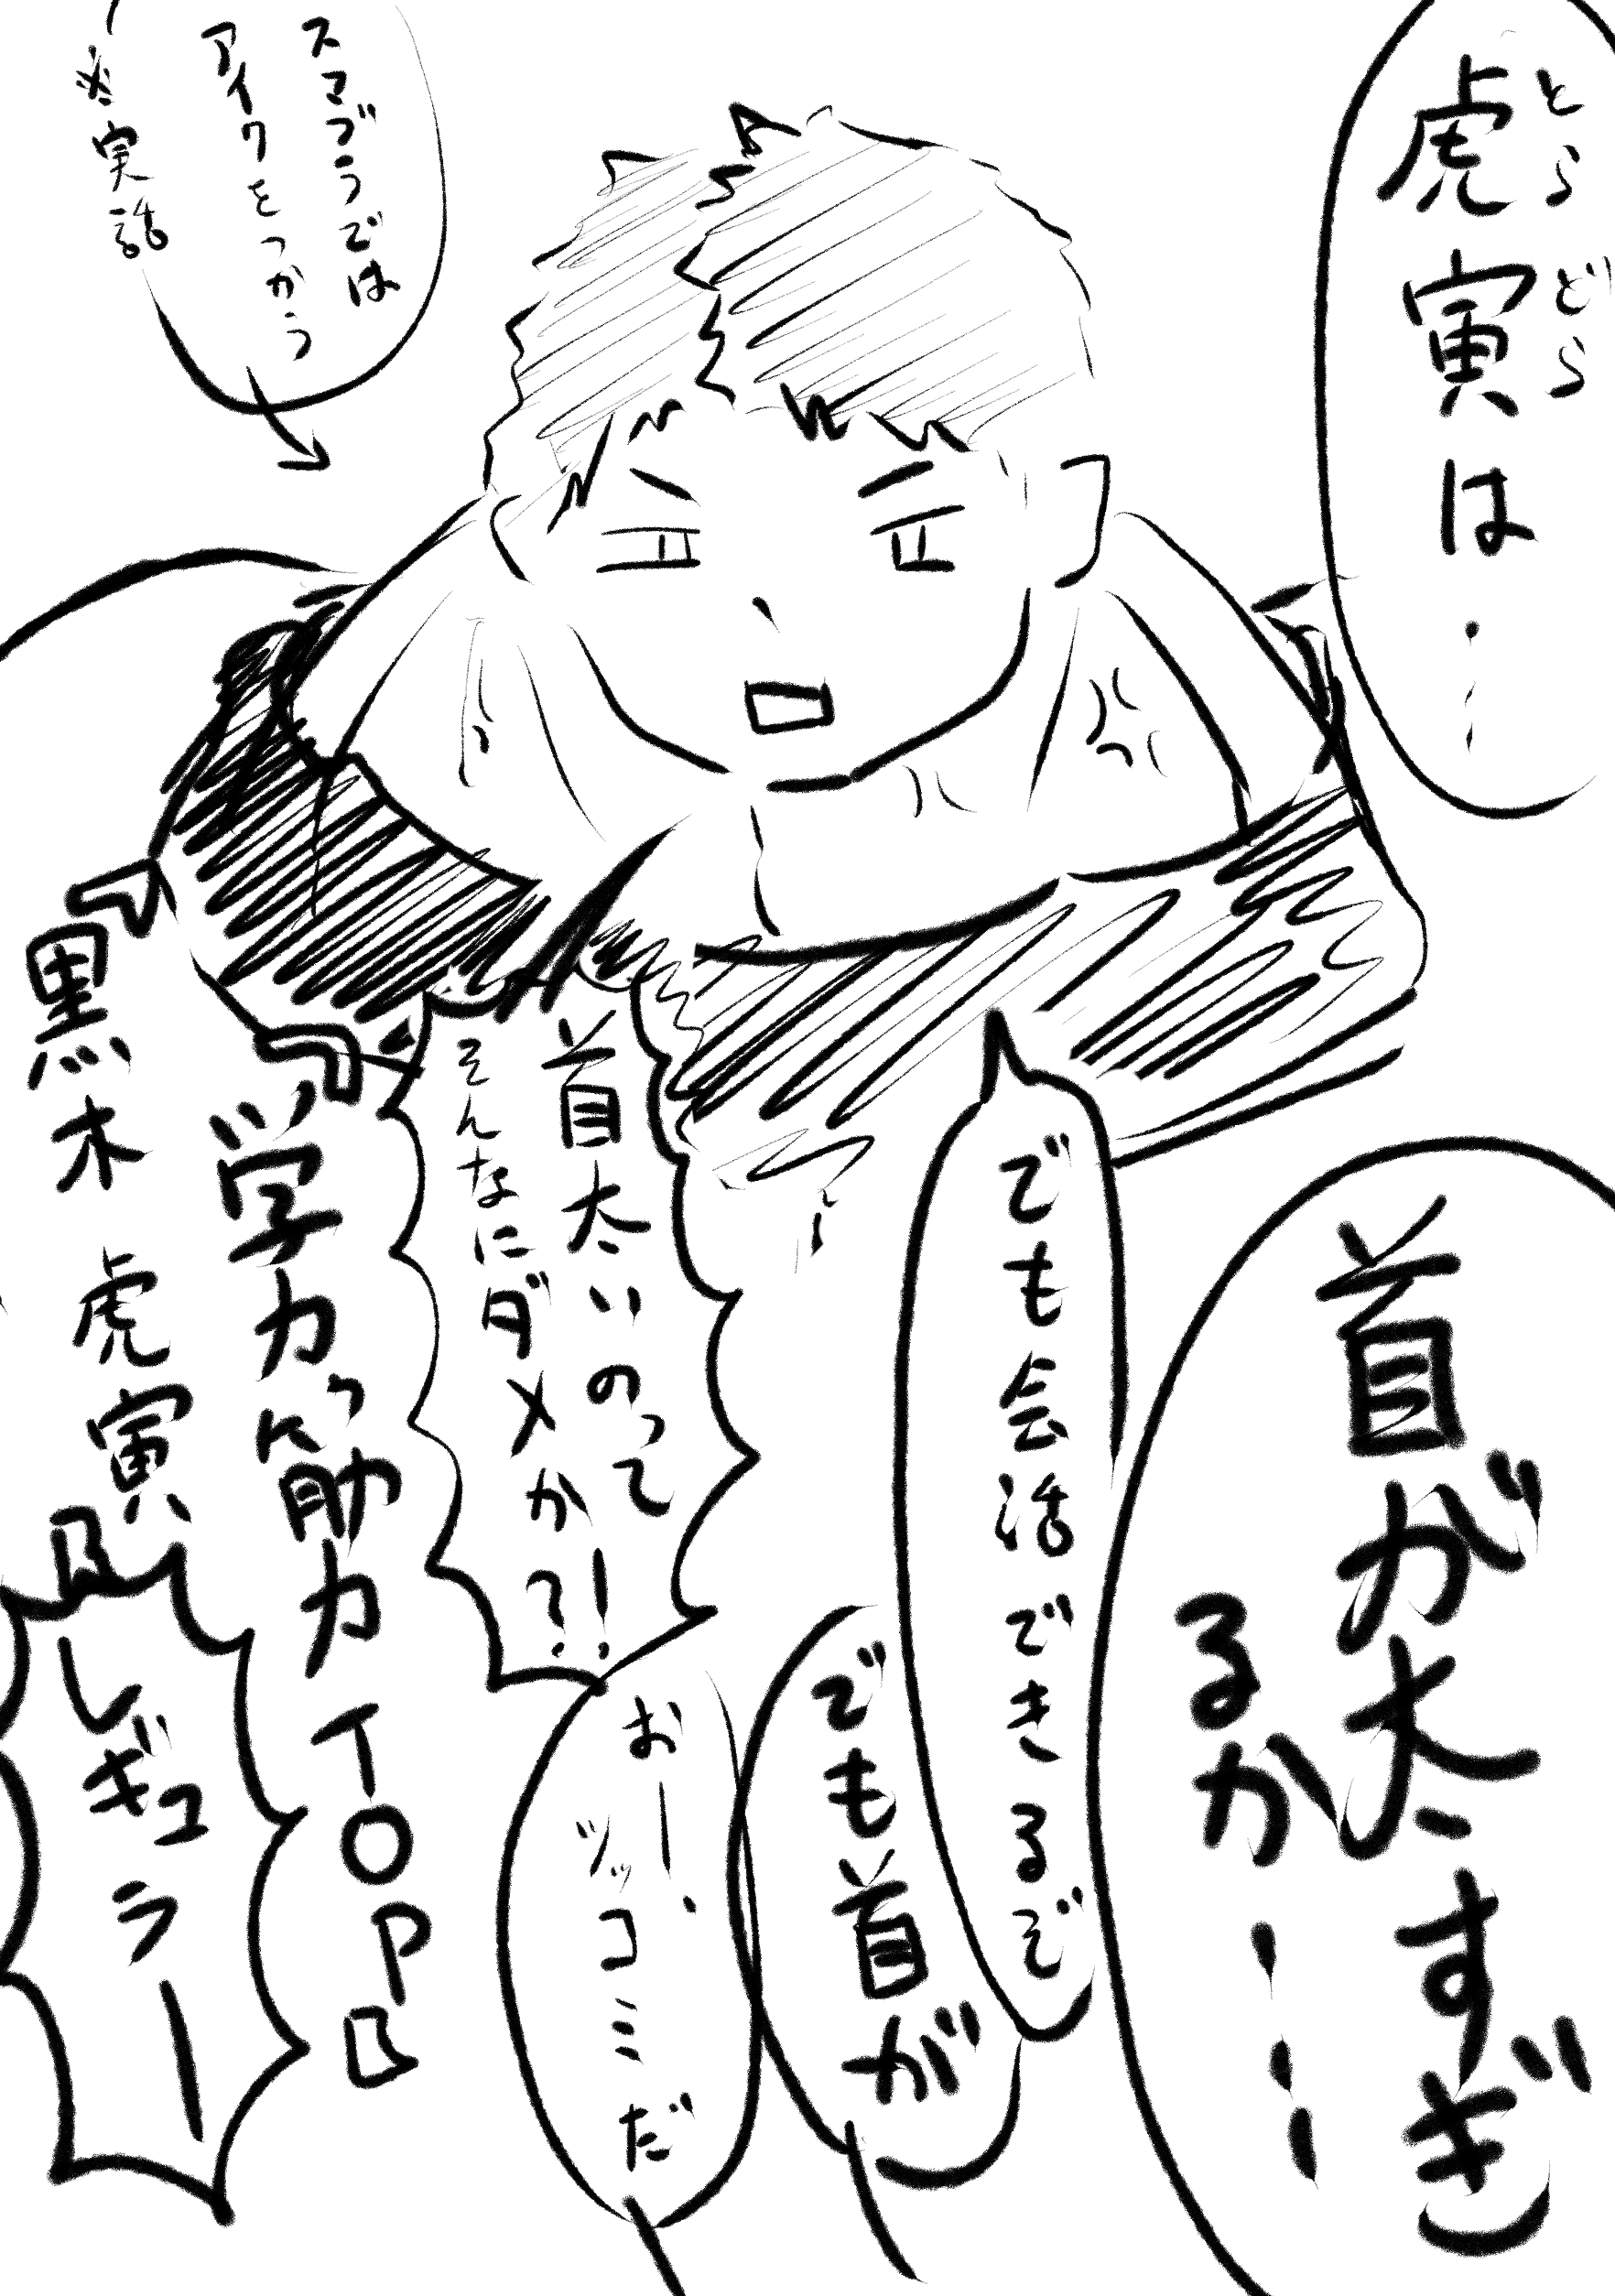 とらどら
虎寅は・・・
首が太すぎ
るかーー
でも会話できるぞ
でも首が
首太いのって
そんなにダメか?!
おー、
ツッコミだ
スマブラでは
アイクをつかう
※実話
『学力っ筋力TOP』
『黒木虎寅』
レギュラー